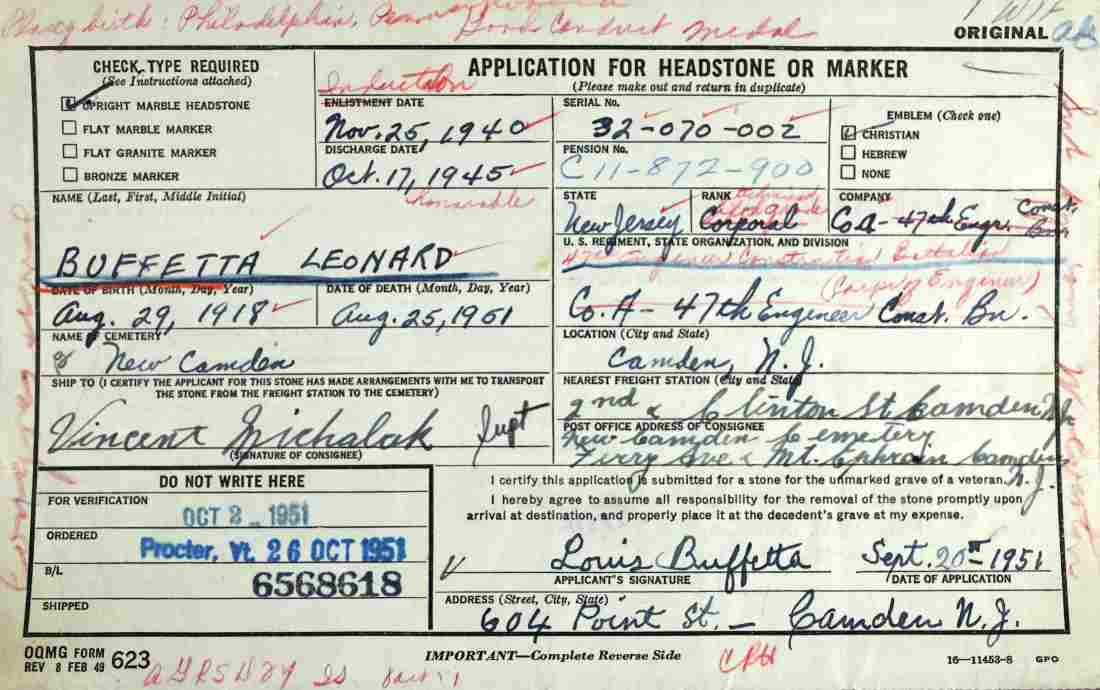 Place of birth: Philadelphia, Pennsylvania
Good Conduct Medal
ORIGINAL
CHECK TYPE REQUIRED
(See Instructions attached)
UPRIGHT MARBLE HEADSTONE
FLAT MARBLE MARKER
FLAT GRANITE MARKER
BRONZE MARKER
Induction
ENLISTMENT DATE
Nov. 25, 1940
DISCHARGE DATE
Oct. 17, 1945
honorable
APPLICATION FOR HEADSTONE OR MARKER
(Please make out and return in duplicate)
SERIAL No.
32-070-002
PENSION No.
C11-872-900
EMBLEM (Check one)
CHRISTIAN
HEBREW
NONE
NAME (Last, First, Middle Initial)
BUFFETTA LEONARD
STATE
New Jersey
RANK
Corporal
COMPANY
Co A - 47th Engr. Const. Bn
U. S. REGIMENT, STATE ORGANIZATION, AND DIVISION
47th Engineer Construction Battalion
(Corps of Engineer)
Co. A - 47th Engineer Const. Bn.
DATE OF BIRTH (Month, Day, Year)
Aug. 29, 1918
DATE OF DEATH (Month, Day, Year)
Aug. 25, 1951
NAME OF CEMETERY
New Camden
LOCATION (City and State)
Camden, N. J.
SHIP TO (I CERTIFY THE APPLICANT FOR THIS STONE HAS MADE ARRANGEMENTS WITH ME TO TRANSPORT
THE STONE FROM THE FREIGHT STATION TO THE CEMETERY)
Vincent Michalak Supt
(SIGNATURE OF CONSIGNEE)
NEAREST FREIGHT STATION (City and State)
2nd & Clinton St Camden NJ
POST OFFICE ADDRESS OF CONSIGNEE
New Camden Cemetery
Ferry Ave & Mt. Ephraim Camden
N. J.
DO NOT WRITE HERE
FOR VERIFICATION
OCT 2 - 1951
ORDERED
Procter, Vt. 26 OCT 1951
B/L
6568618
SHIPPED
I certify this application is submitted for a stone for the unmarked grave of a veteran.
I hereby agree to assume all responsibility for the removal of the stone promptly upon
arrival at destination, and properly place it at the decedent's grave at my expense.
Louis Buffetta
APPLICANT'S SIGNATURE
Sept. 20th 1951
DATE OF APPLICATION
ADDRESS (Street, City, State)
604 Point St. - Camden N. J.
OQMG FORM
REV 8 FEB 49 623
IMPORTANT—Complete Reverse Side
CRH
16—11453-8 GPO